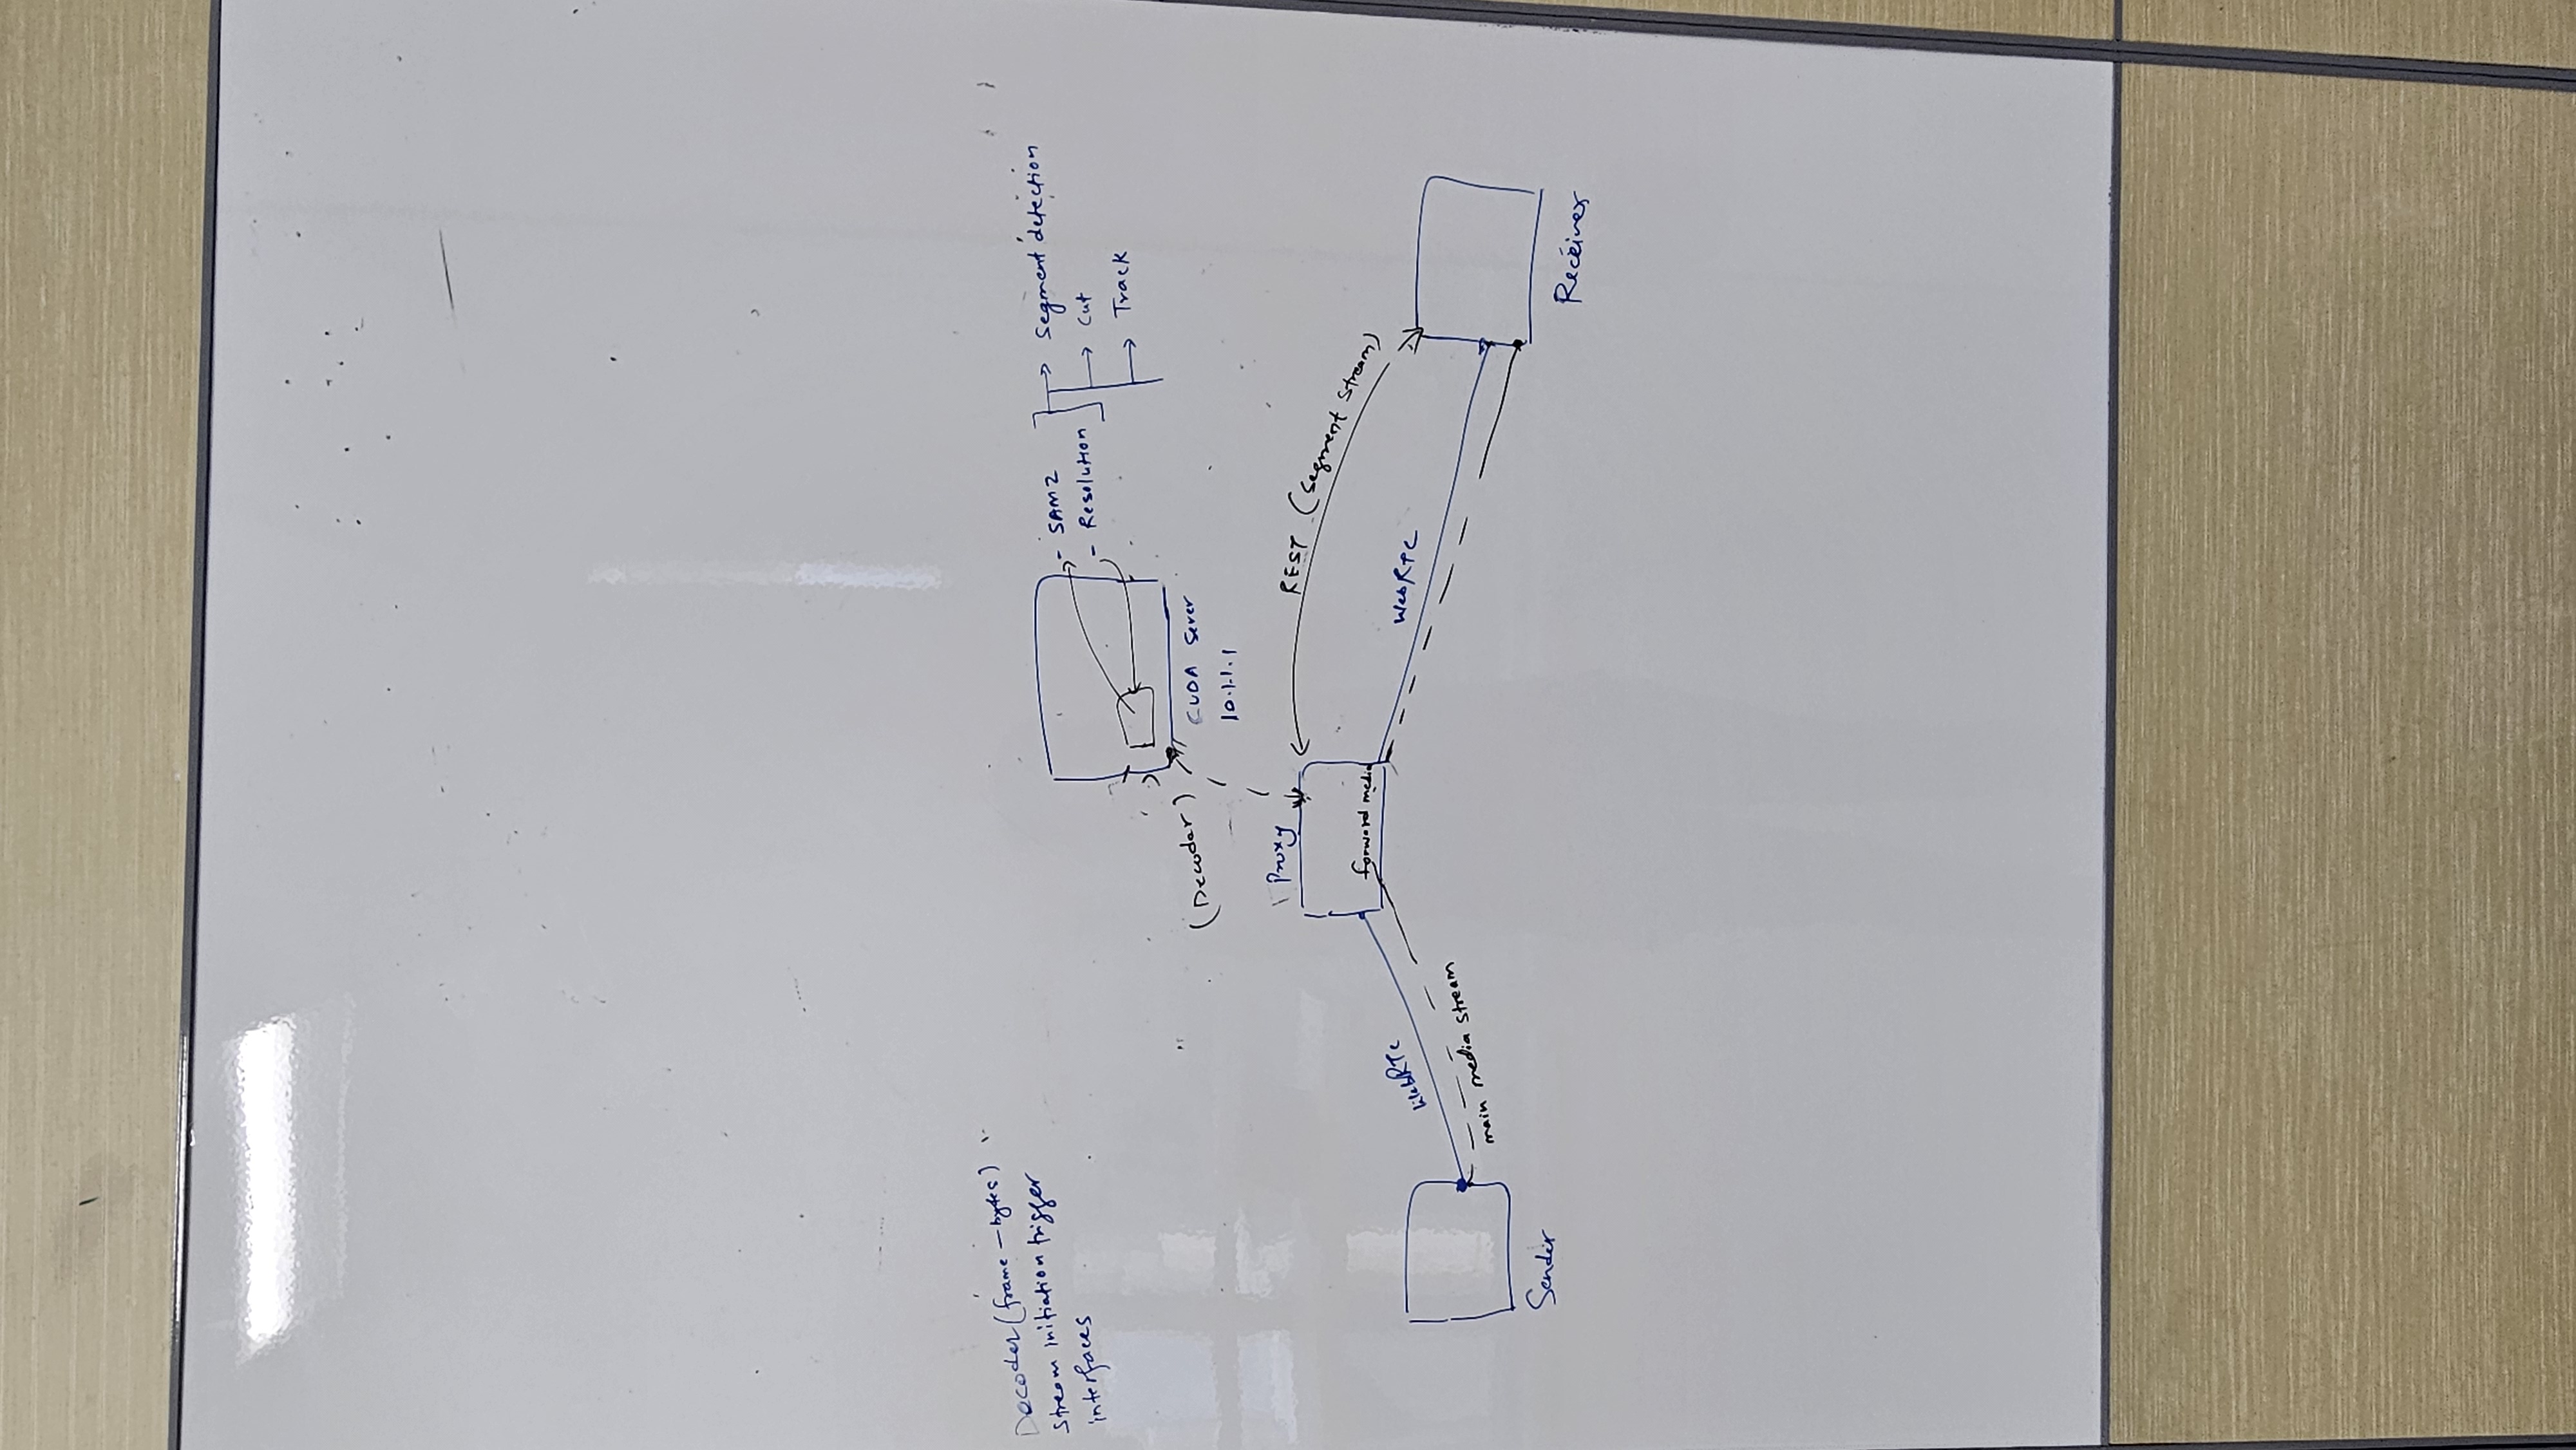 Decoder (frame - bytes)
Stream initiation trigger
interfaces
- SAM2
- Resolution
Segment detection
Cut
Track
(Decoder)
CUDA Server
10.1.1.1
Proxy
forward media
REST (Segment Stream)
WebRTC
main media stream
WebRTC
Sender
Receiver